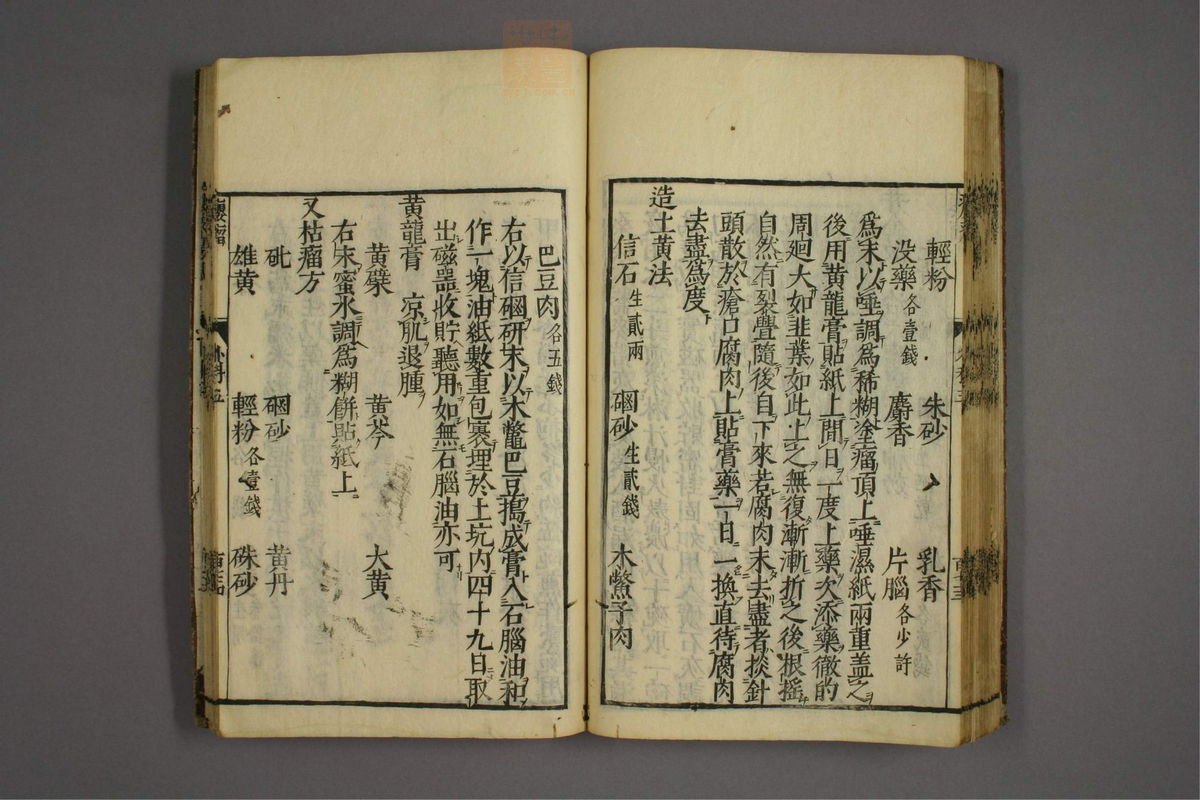 輕粉 朱砂 乳香
没藥各壹錢 麝香 片腦各少許
爲末以唾調爲稀糊塗瘤頂上唾濕紙兩重盖之
後用黄龍膏貼紙上間日一度上藥次添藥徹的
周廻大如韭葉如此上之無復漸漸折之後根摇
自然有裂疊隨後自下來若腐肉未去盡者掞針
頭散於瘡口腐肉上貼膏藥一日一換直待腐肉
去盡爲度
造土黄法
信石生貳兩 硇砂生貳錢 木鱉子肉
巴豆肉各五錢
右以信硇研末以木鱉巴豆搗成膏入石腦油和
作一塊油紙數重包褁埋於土坑内四十九日取
出磁器收貯聽用如無石腦油亦可
黄龍膏 凉肌退腫
黄檗 黄芩 大黄
右末蜜水調爲糊餅貼紙上
又枯瘤方
砒 硇砂 黄丹
雄黄 輕粉各壹錢 硃砂
癭瘤 外科五